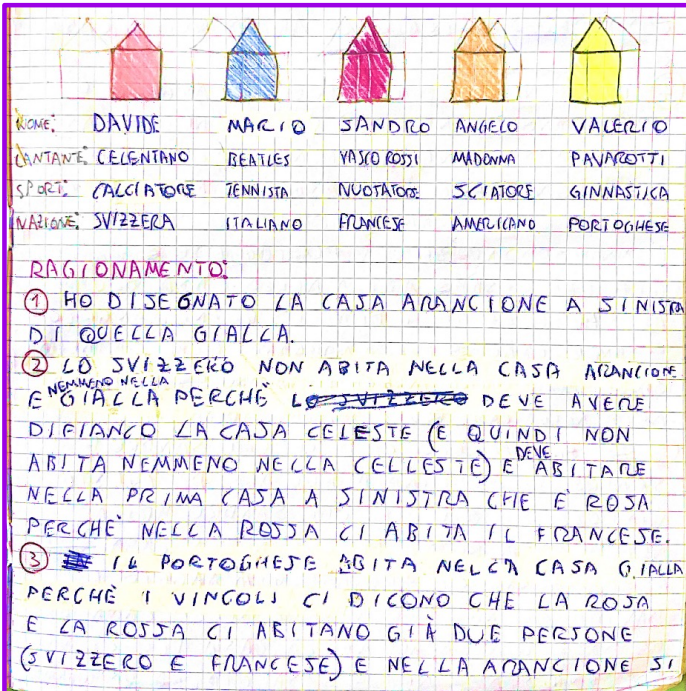 NOME: DAVIDE MARIO SANDRO ANGELO VALERIO
CANTANTE: CELENTANO BEATLES VASCO ROSSI MADONNA PAVAROTTI
SPORT: CALCIATORE TENNISTA NUOTATORE SCIATORE GINNASTICA
NAZIONE: SVIZZERA ITALIANO FRANCESE AMERICANO PORTOGHESE
RAGIONAMENTO:
① HO DISEGNATO LA CASA ARANCIONE A SINISTRA
DI QUELLA GIALLA.
② LO SVIZZERO NON ABITA NELLA CASA ARANCIONE
E NEMMENO NELLA GIALLA PERCHÈ DEVE AVERE
DIFIANCO LA CASA CELESTE (E QUINDI NON
ABITA NEMMENO NELLA CELLESTE) E DEVE ABITARE
NELLA PRIMA CASA A SINISTRA CHE È ROSA
PERCHÈ NELLA ROSSA CI ABITA IL FRANCESE.
③ IL PORTOGHESE ABITA NELLA CASA GIALLA
PERCHÈ I VINCOLI CI DICONO CHE LA ROSA
E LA ROSSA CI ABITANO GIÀ DUE PERSONE
(SVIZZERO E FRANCESE) E NELLA ARANCIONE SI